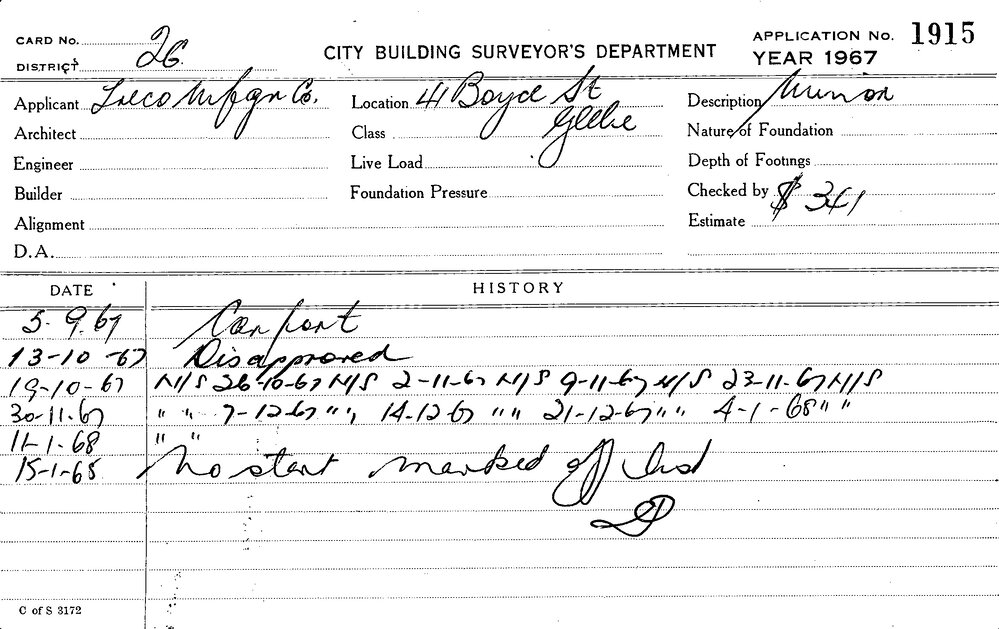 CARD No.
DISTRICT 26
CITY BUILDING SURVEYOR'S DEPARTMENT
APPLICATION No. 1915
YEAR 1967
Applicant Co. Location 41 Boyce St Description Minor
Architect Class Glebe Nature of Foundation
Engineer Live Load Depth of Footings
Builder Foundation Pressure Checked by $ 341
Alignment Estimate
D.A.
DATE HISTORY
5-9.67 Carport
13-10-67 Disapproved
19-10-67 N/S 26-10-67 N/S 2-11-67 N/S 9-11-67 N/S 23-11-67 N/S
30-11-67 " " 7-12-67 " " 14-12-67 " " 21-12-67 " " 4-1-68 " "
11-1-68 " "
15-1-68 No start marked off
C of S 3172